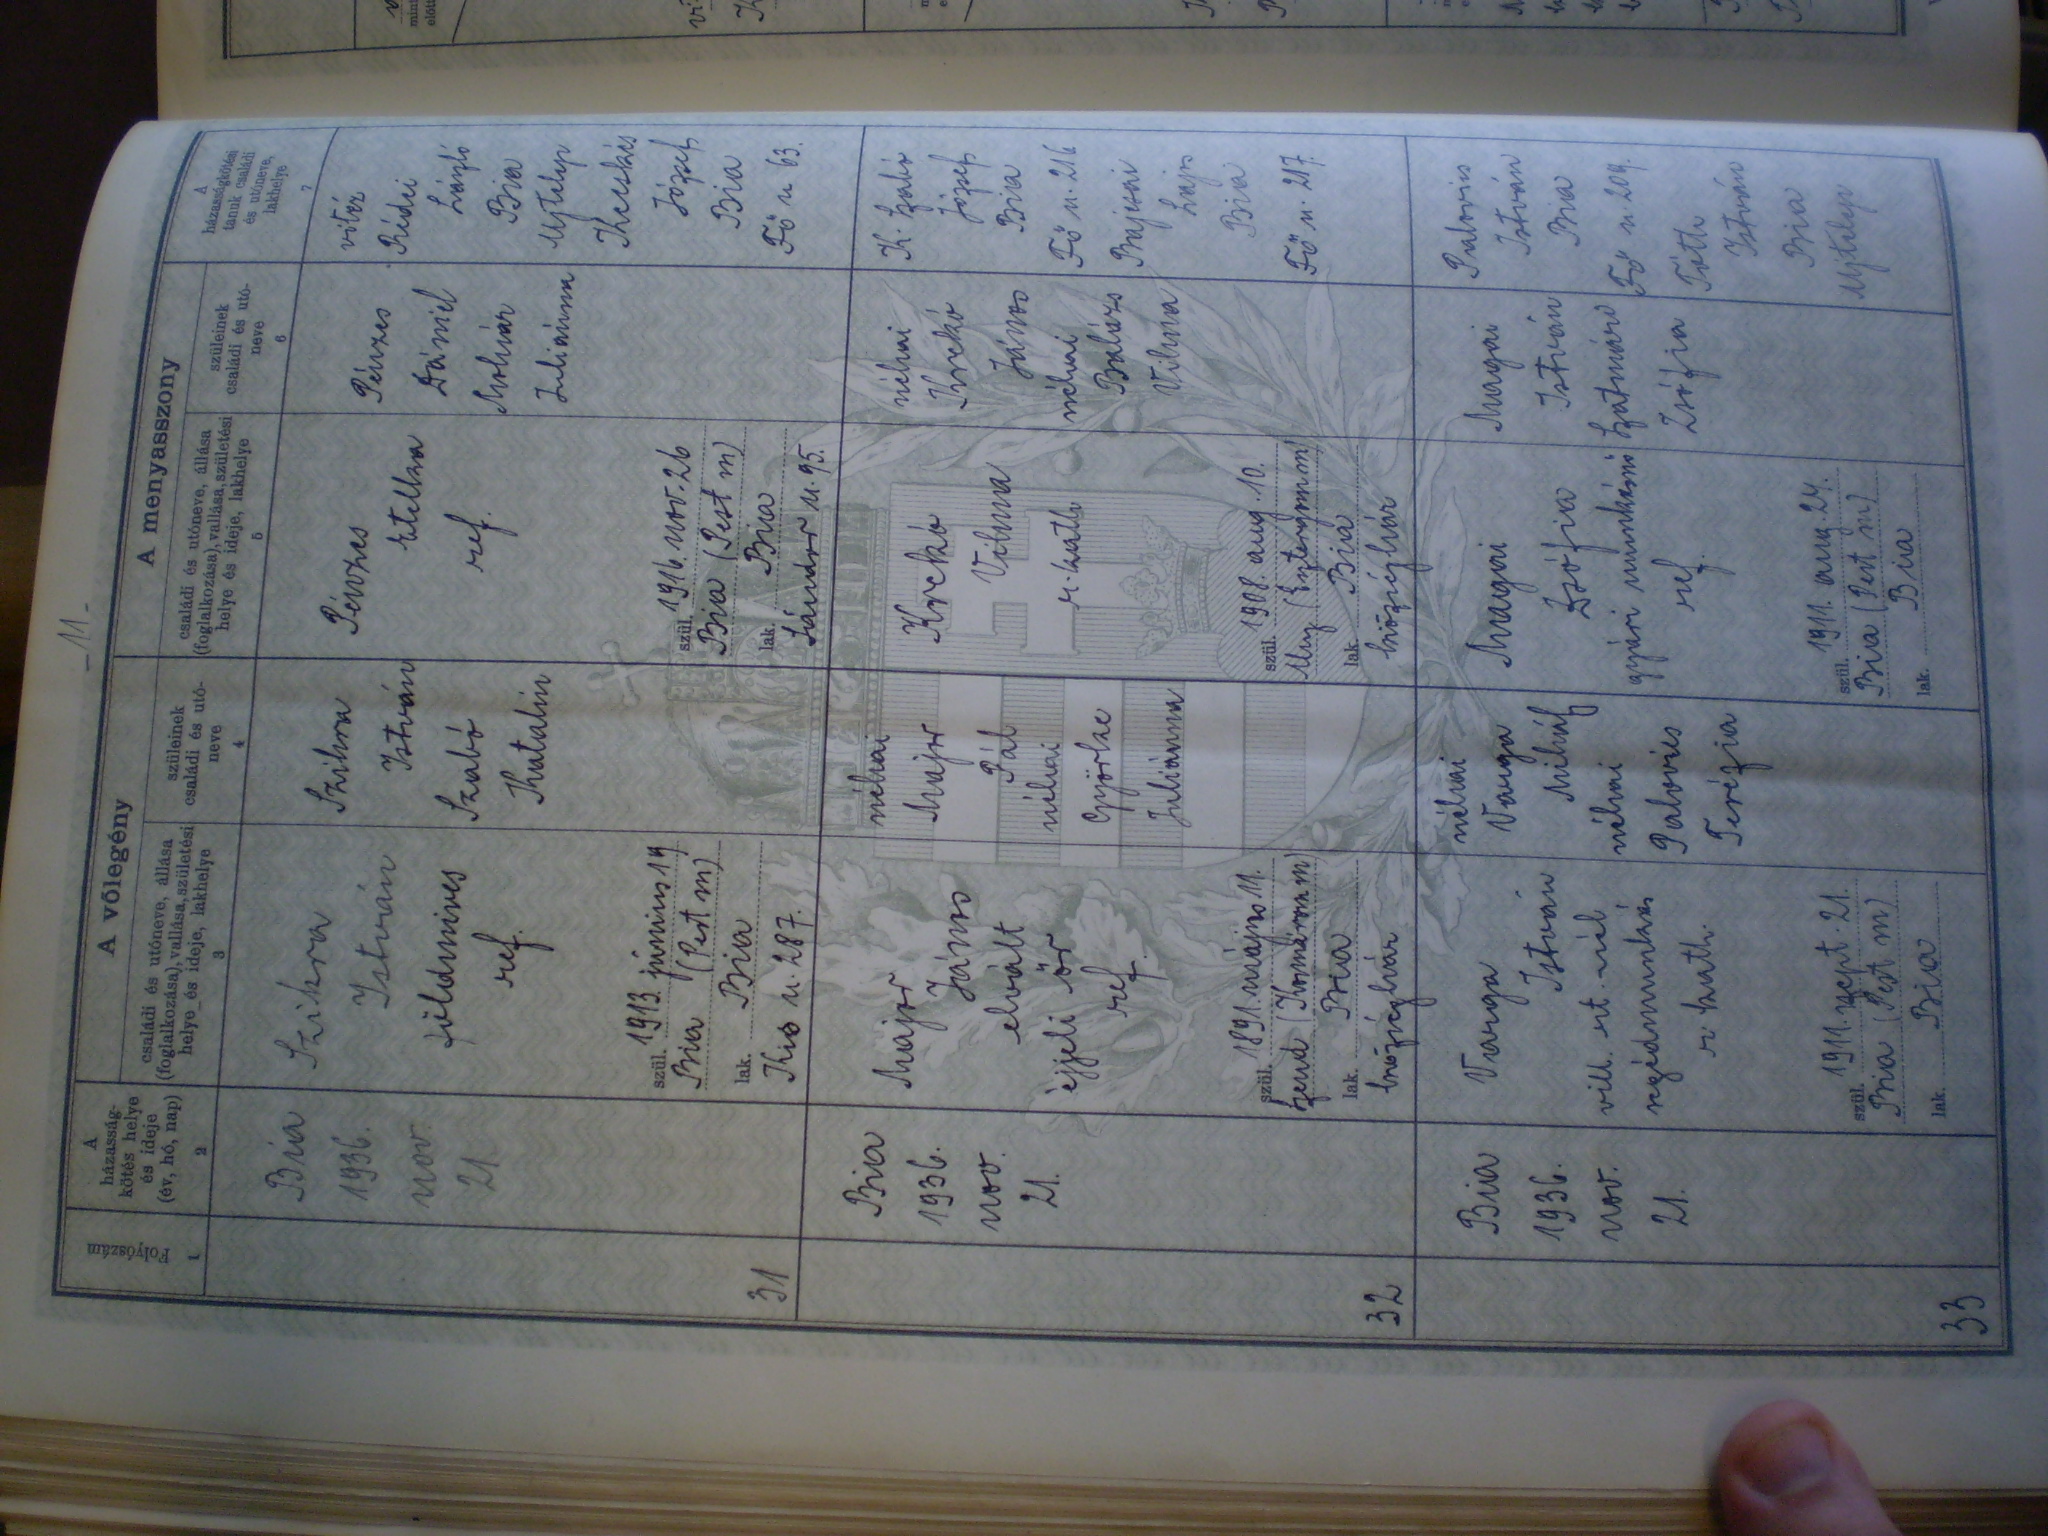 - 11 -
A vőlegény
A menyasszony
Folyószám
1
A
házasság-
kötés helye
és ideje
(év, hó, nap)
2
családi és utóneve, állása
(foglalkozása), vallása, születési
helye és ideje, lakhelye
3
szüleinek
családi és utó-
neve
4
családi és utóneve, állása
(foglalkozása), vallása, születési
helye és ideje, lakhelye
5
szüleinek
családi és utó-
neve
6
A
házasságkötési
tanuk családi
és utóneve,
lakhelye
7
31
Bia
1936.
nov.
21.
Szikra
István
földmíves
ref.
szül. 1913. június 14
Bia (Pest m)
lak. Bia
Kis u. 287.
Szikra
István
Szabó
Katalin
Pénzes
Etelka
ref.
szül. 1916. nov. 26
Bia (Pest m)
lak. Bia
u. 95.
Pénzes
Dániel
Molnár
Juliánna
vitéz
Rédei
László
Bia
Ujtelep
Kecskés
József
Bia
Fő u 63.
32
Bia
1936.
nov.
21.
Major
János
elvált
éjjeli őr
ref.
szül. 1891. május 11.
Szend (Komárom m)
lak. Bia
községház
néhai
Major
Pál
néhai
Györke
Juliánna
Krckó
Vilma
r. kath
szül. 1908. aug. 10.
Muzs (Esztergom m)
lak. Bia
községház
néhai
Krckó
János
néhai
Balázs
Vilma
K. Szabó
József
Bia
Fő u. 216
Bajcsai
Lajos
Bia
Fő u. 217.
33
Bia
1936.
nov.
21.
Varga
István
vill. rt.-nál
segédmunkás
r. kath.
szül. 1911. szept. 21.
Bia (Pest m)
lak. Bia
néhai
Varga
Mihály
néhai
Palovics
Terézia
Magai
Zsófia
gyári munkásnő
ref.
szül. 1911. aug. 24.
Bia (Pest m)
lak. Bia
Magai
István
Szatmári
Zsófia
Palovics
István
Bia
Fő u. 209.
Tóth
István
Bia
Ujtelep